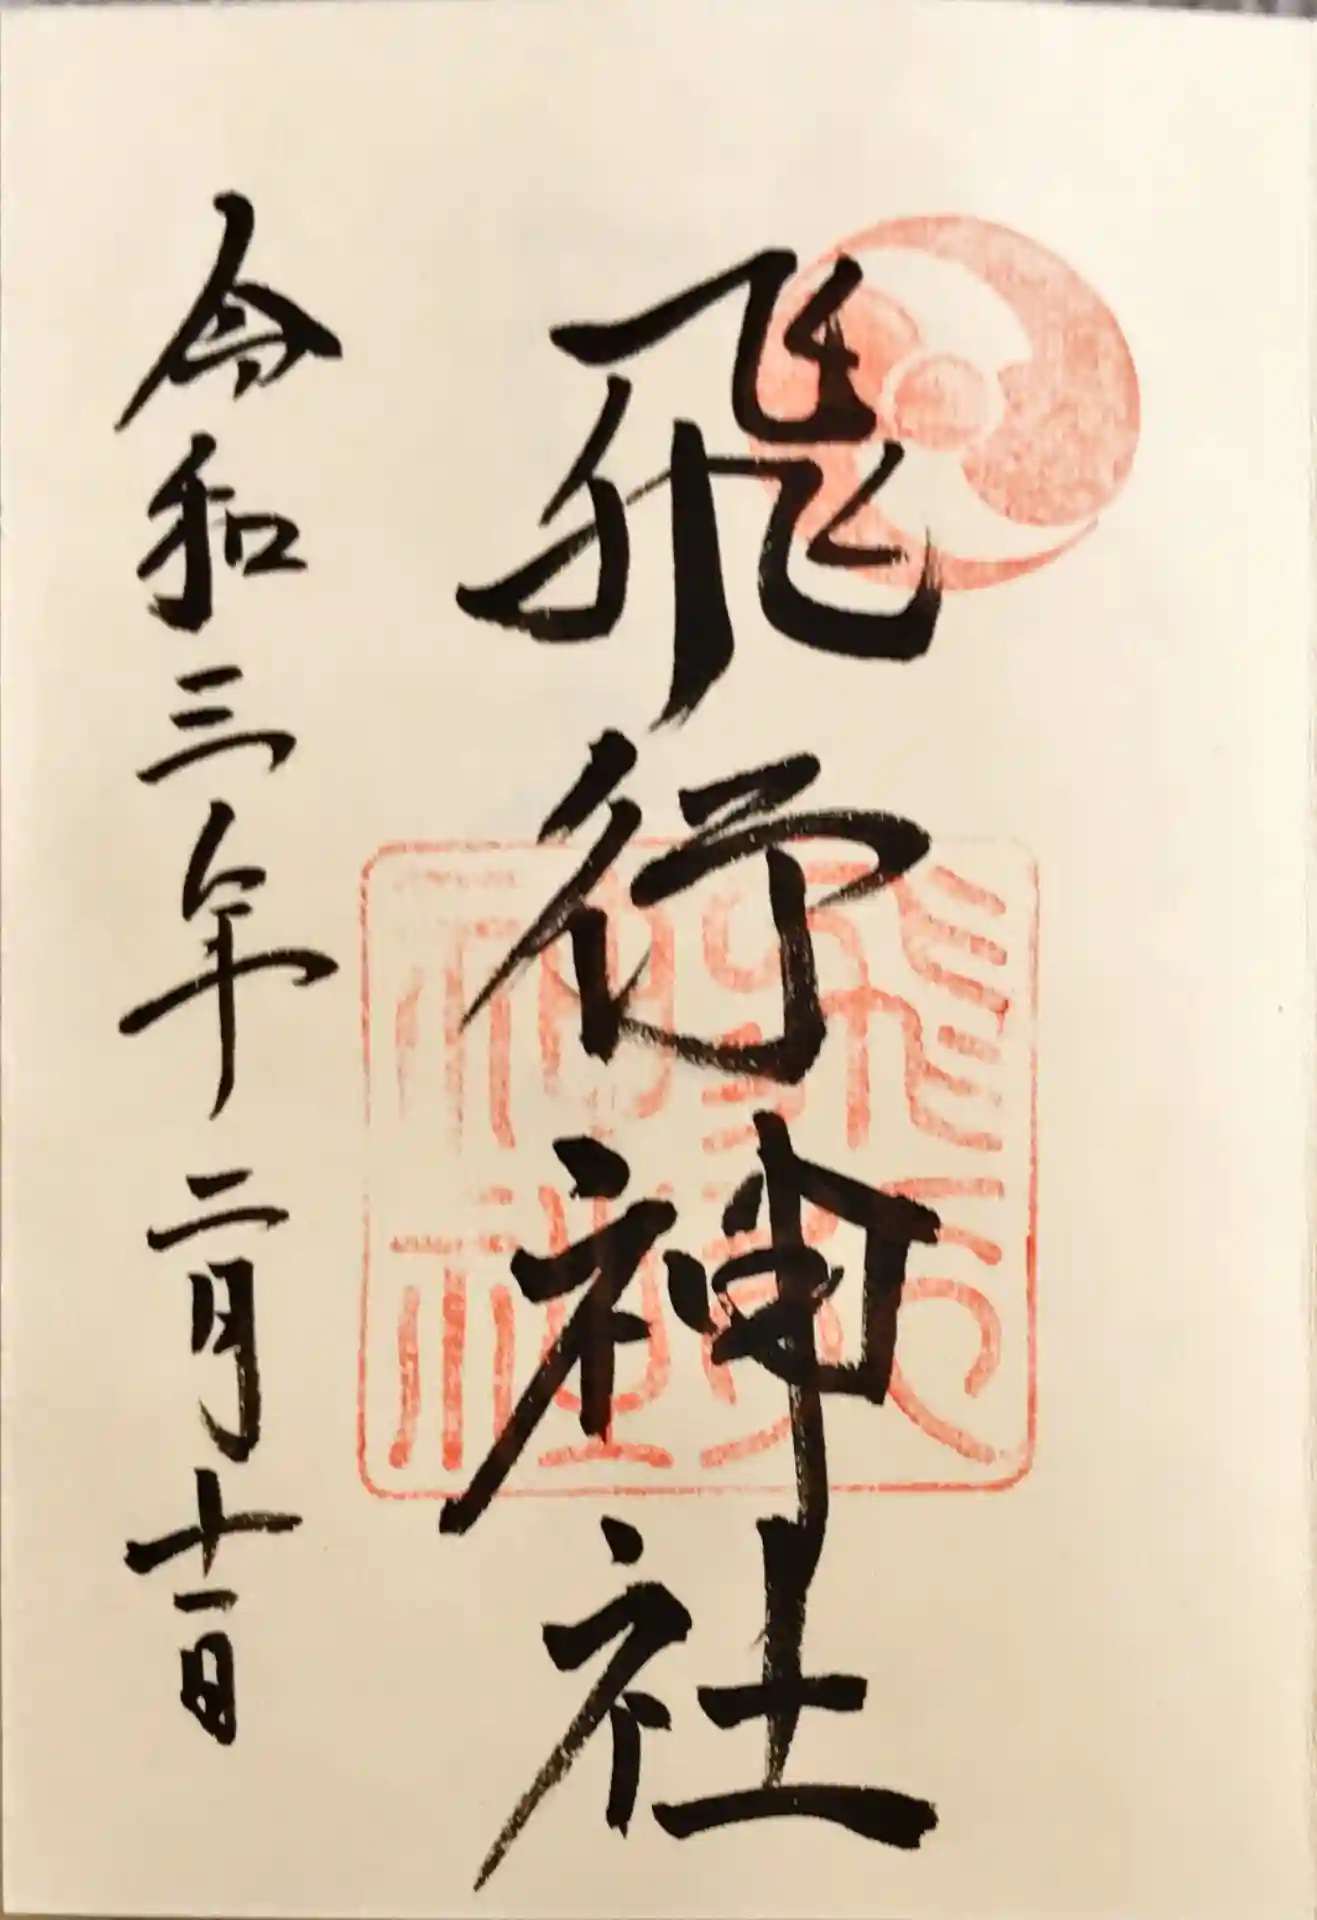 飛行神社
飛行
神社
令和三年二月十一日